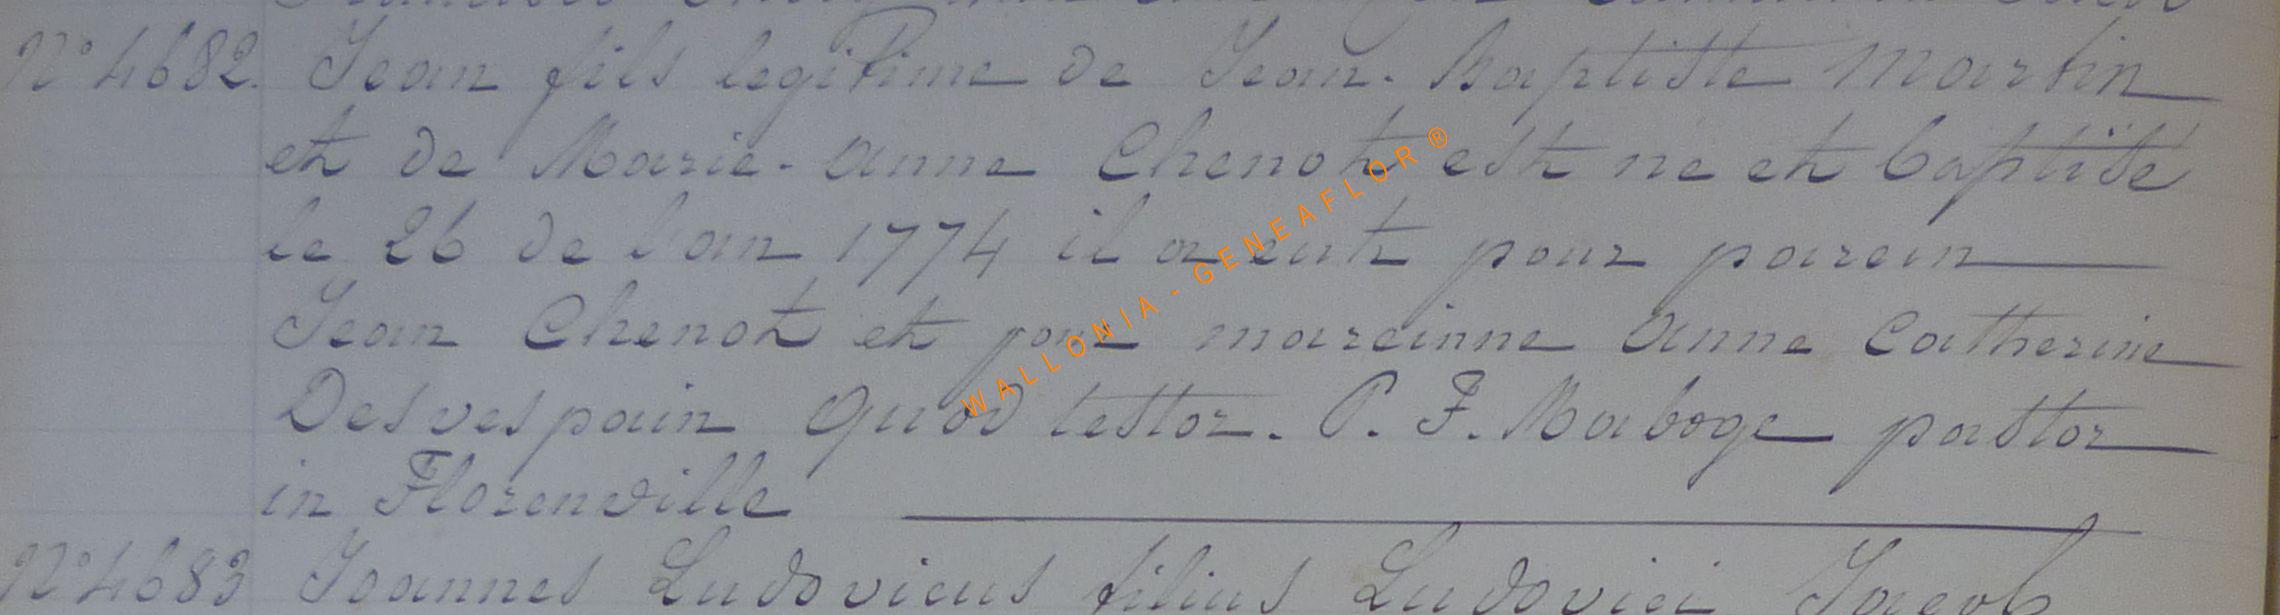 N° 4682. Jean fils legitime de Jean-Baptiste Martin
et de Marie-anne Chenot est ne et baptiste
le 26 de l'an 1774 il a eut pour parein
Jean Chenot et pour mareinne anne Catherine
Desvespain quod testor. P. F. Maboge pastor
in Florenville
N° 4683 Joannes Ludovicus filius Ludovici Jacob
WALLONIA - GENEAFLOR ®